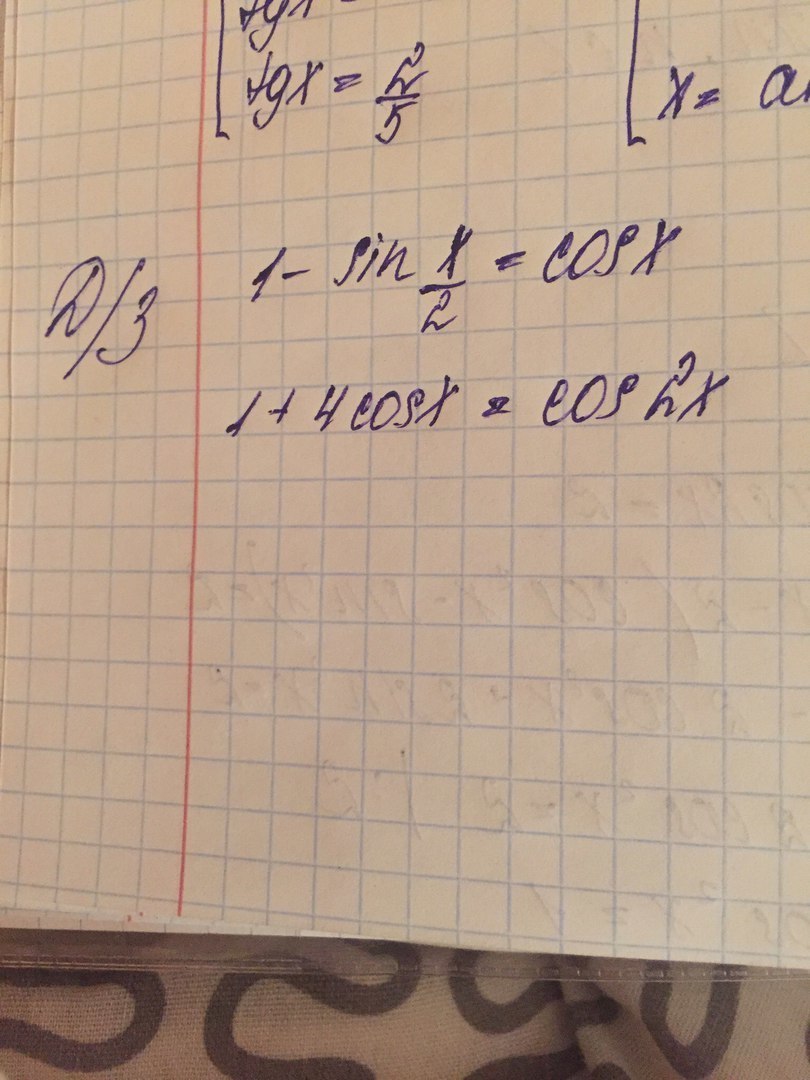 tgx =
tgx = 2/5
x = a
Д/З
1 - sin x/2 = cosx
1 + 4cosx = cos2x